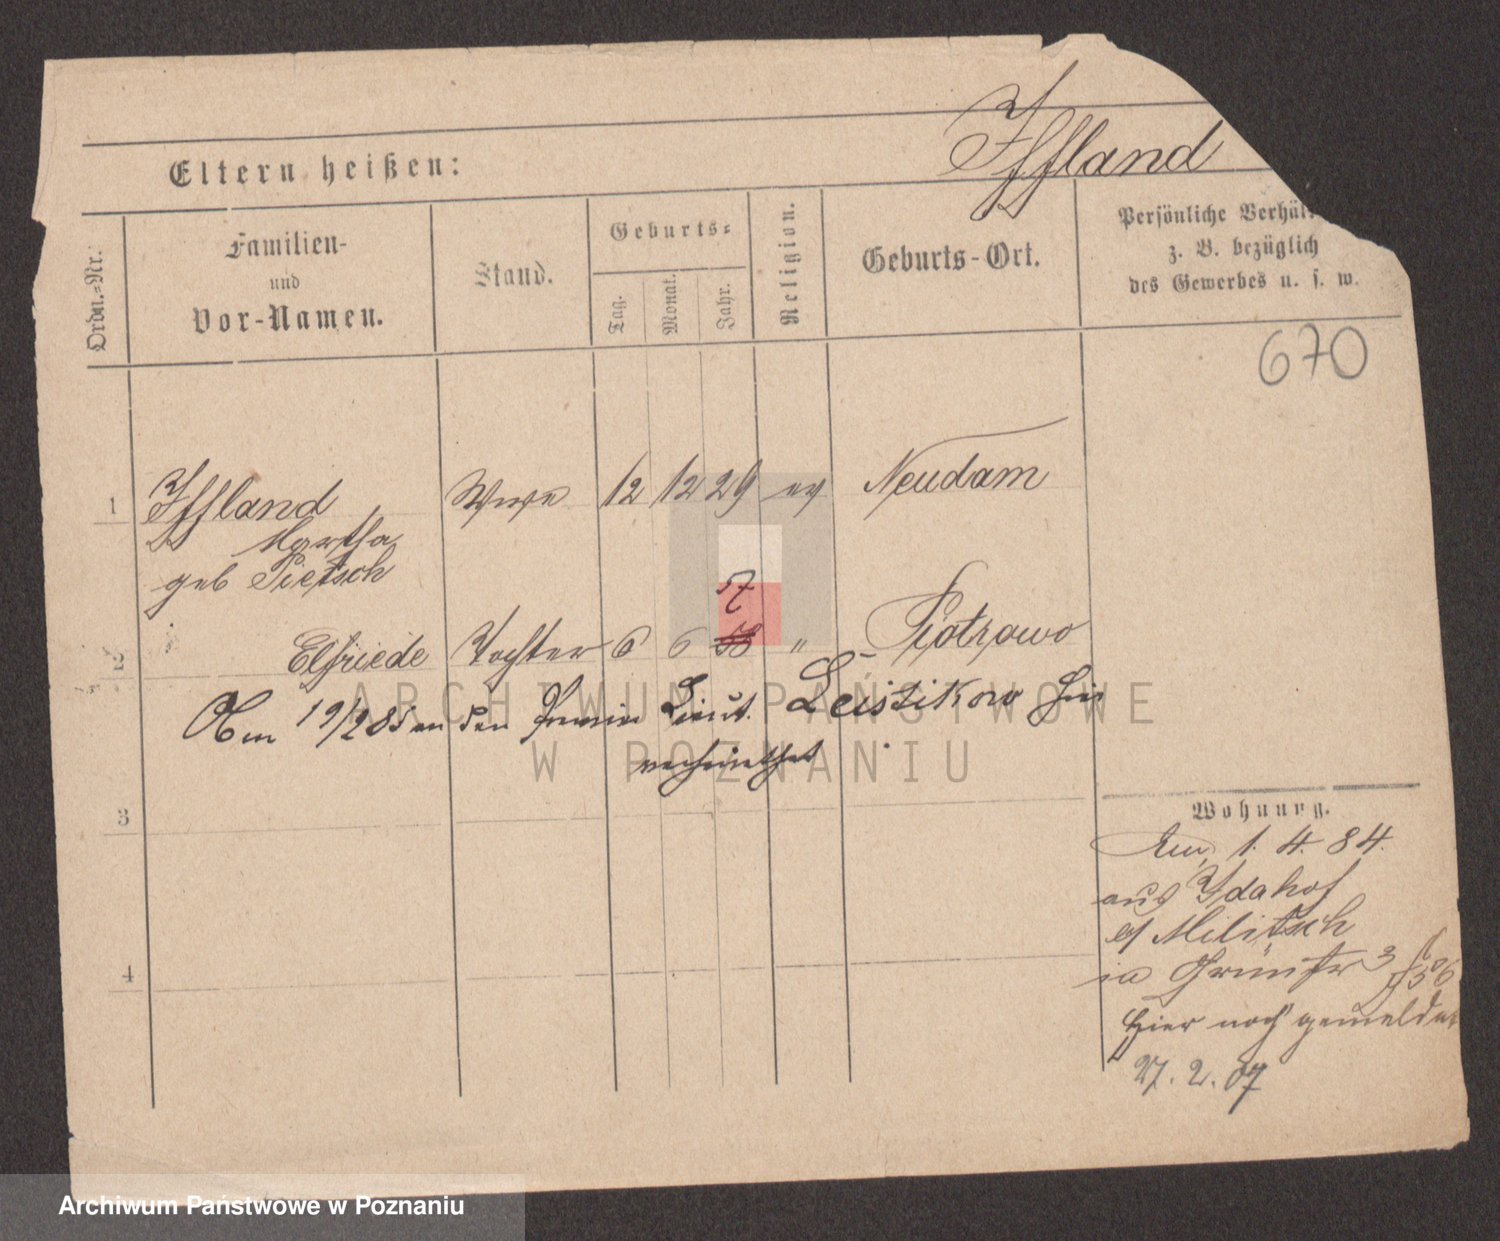 Iffland
Eltern heißen:
Ordn.-Nr.
Familien-
und
Vor-Namen.
Stand.
Geburts-
Tag.
Monat.
Jahr.
Religion.
Geburts-Ort.
Persönliche Verhäl
z. B. bezüglich
des Gewerbes u. s. w.
670
1 Iffland Wwe 12 12 29 ev Neudam
Martha
geb Pietsch
57
2 Elfriede Tochter 6 6 58 " Piotrowo
Am 19/2 85 an den Premier Lieut. Leistikow hier
verheirathet
3
4
Wohnung.
Am 1. 4. 84.
aus Idahof
Militsch
in Grünstr 3
hier noch gemeldet
27. 2. 07
ARCHIWUM PAŃSTWOWE
W POZNANIU
Archiwum Państwowe w Poznaniu